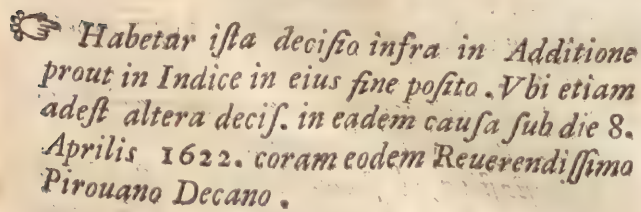 ☞ Habetur iſta deciſio infra in Additione
prout in Indice in eius fine poſito. Vbi etiam
adeſt altera deciſ. in eadem cauſa ſub die 8.
Aprilis 1622. coram eodem Reuerendiſſimo
Pirouano Decano.